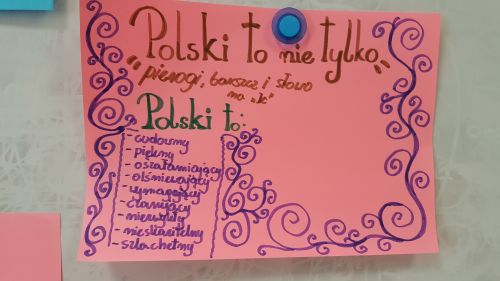 Polski to nie tylko
"pierogi, barszcz i słowo
na „k"
Polski to:
- cudowny
- piękny
- oszałamiający
- olśniewający
- wymagający
- czarujący
- niezwykły
- nieskazitelny
- szlachetny